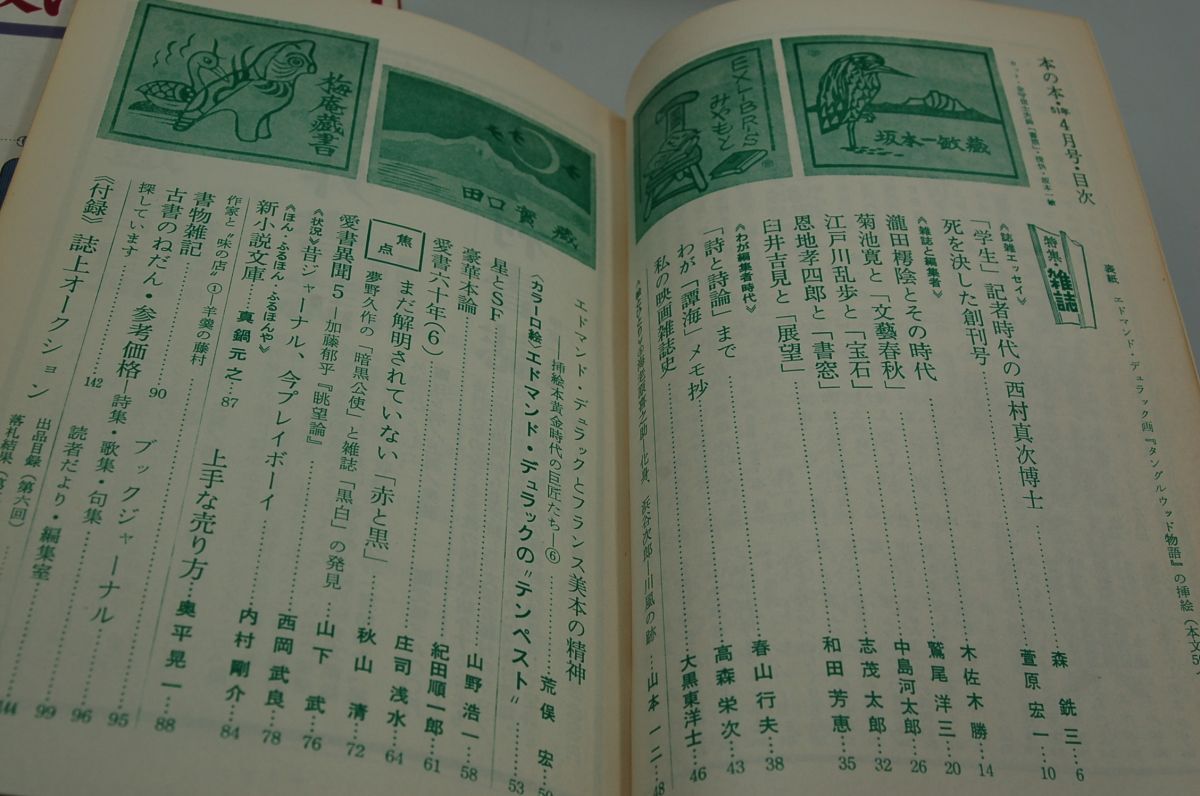 本の本・51年4月号・目次
表紙 エドマンド・デュラック画『タングルウッド物語』の挿絵
坂本一敏藏
EX-LIBRIS
みやもと
特集・雑誌
《雑誌エッセイ》
「学生」記者時代の西村真次博士……森 銑三…6
死を決した創刊号……萱原宏一…10
《雑誌と編集者》
瀧田樗陰とその時代……木佐木 勝…14
菊池寛と「文藝春秋」……鷲尾洋三…20
江戸川乱歩と「宝石」……中島河太郎…26
恩地孝四郎と「書窓」……志茂太郎…32
臼井吉見と「展望」……和田芳恵…35
《わが編集者時代》
「詩と詩論」まで……春山行夫…38
わが「譚海」メモ抄……高森栄次…43
私の映画雑誌史……大黒東洋士…46
浜谷次郎—川風の跡……山本一二…48
田口賀藏
梅庵藏書
エドマンド・デュラックとフランス美本の精神
——挿絵本黄金時代の巨匠たち—⑥……荒俣 宏…50
《カラー口絵》エドマンド・デュラックの〝テンペスト〟……53
星とSF……山野浩一…58
豪華本論……紀田順一郎…61
愛書六十年(6)……庄司浅水…64
焦点
まだ解明されていない「赤と黒」……秋山 清…72
夢野久作の「暗黒公使」と雑誌「黒白」の発見……山下 武…76
愛書異聞5—加藤郁平『眺望論』……西岡武良…78
《状況》昔ジャーナル、今プレイボーイ……内村剛介…84
《ほん・ふるほん・ふるほんや》
新小説文庫……真鍋元之…87
上手な売り方……奥平晃一…88
作家と〝味の店〟①—羊羹の藤村
書物雑記……90
ブックジャーナル……95
古書のねだん・参考価格—詩集・歌集・句集……96
探しています
読者だより・編集室……99
《付録》誌上オークション……142
出品目録(第六回)……144
落札結果(第